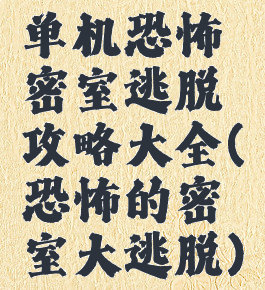 单机恐怖
密室逃脱
攻略大全(
恐怖的密
室大逃脱)